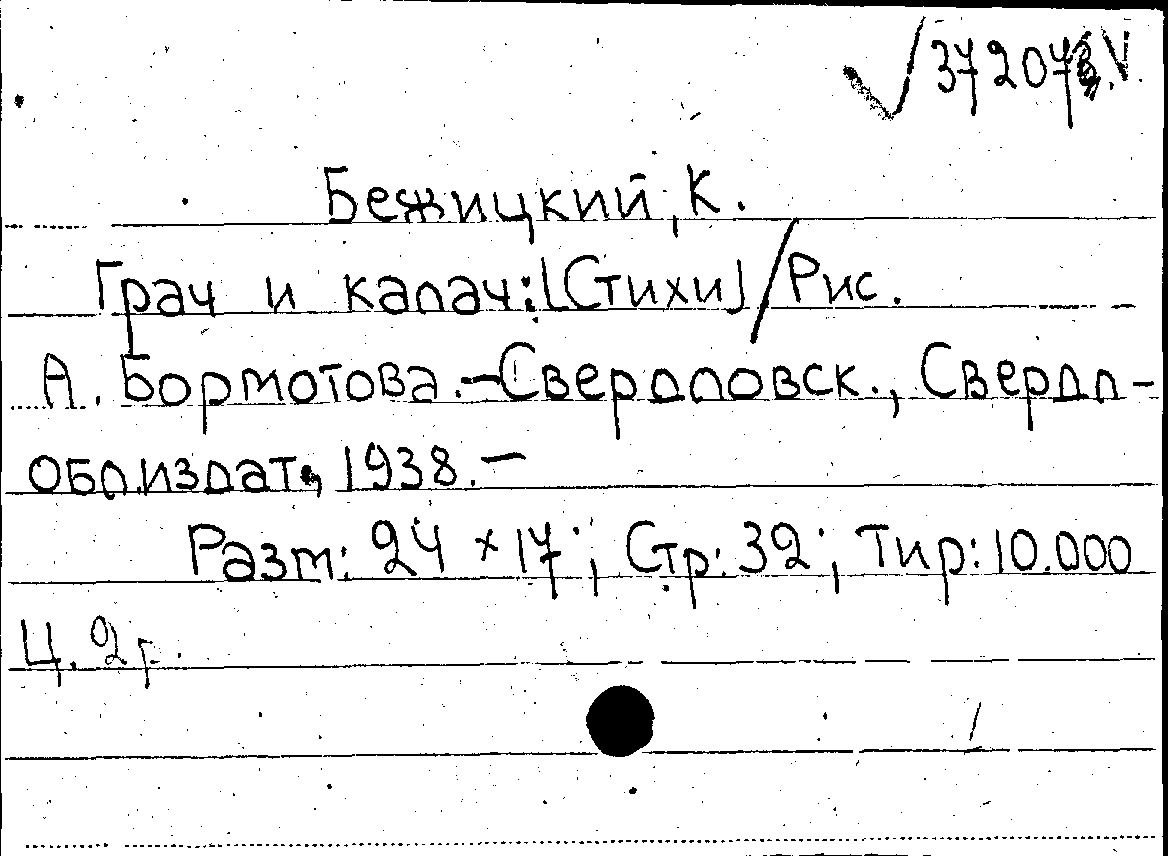 37207 V.
Бежицкий, К.
Грач и калач: [Стихи] / Рис.
А. Бормотова. – Свердловск., Свердл-
обл.издат., 1938. –
Разм: 24 × 17; Стр: 32; Тир: 10.000
Ц. 2 р.